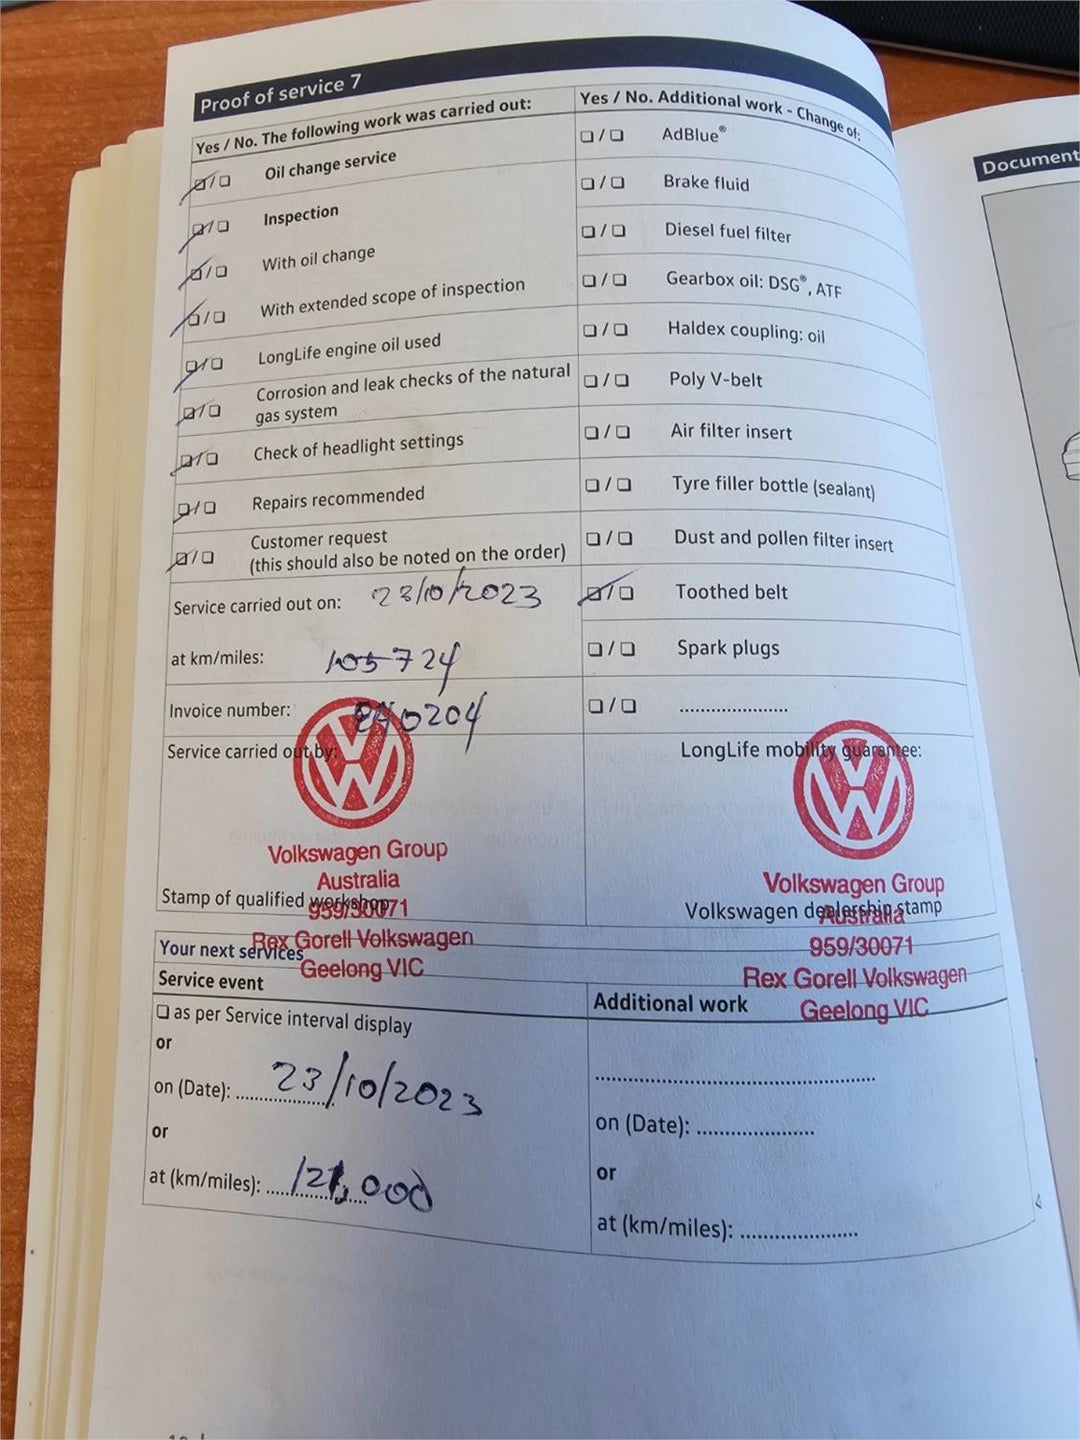 Proof of service 7
Yes / No. The following work was carried out:
❑/❑ Oil change service
❑/❑ Inspection
❑/❑ With oil change
❑/❑ With extended scope of inspection
❑/❑ LongLife engine oil used
❑/❑ Corrosion and leak checks of the natural
gas system
❑/❑ Check of headlight settings
❑/❑ Repairs recommended
❑/❑ Customer request
(this should also be noted on the order)
Service carried out on: 23/10/2023
at km/miles: 105724
Invoice number: 0204
Service carried out by:
Volkswagen Group
Australia
959/30071
Rex Gorell Volkswagen
Geelong VIC
Stamp of qualified workshop
Yes / No. Additional work - Change of:
❑/❑ AdBlue®
❑/❑ Brake fluid
❑/❑ Diesel fuel filter
❑/❑ Gearbox oil: DSG®, ATF
❑/❑ Haldex coupling: oil
❑/❑ Poly V-belt
❑/❑ Air filter insert
❑/❑ Tyre filler bottle (sealant)
❑/❑ Dust and pollen filter insert
❑/❑ Toothed belt
❑/❑ Spark plugs
❑/❑ ......................
LongLife mobility guarantee:
Volkswagen Group
Australia
959/30071
Rex Gorell Volkswagen
Geelong VIC
Volkswagen dealership stamp
Your next services
Service event
❑ as per Service interval display
or
on (Date): 23/10/2023
or
at (km/miles): 121,000
Additional work
..........................................................
on (Date): ........................
or
at (km/miles): ........................
Document